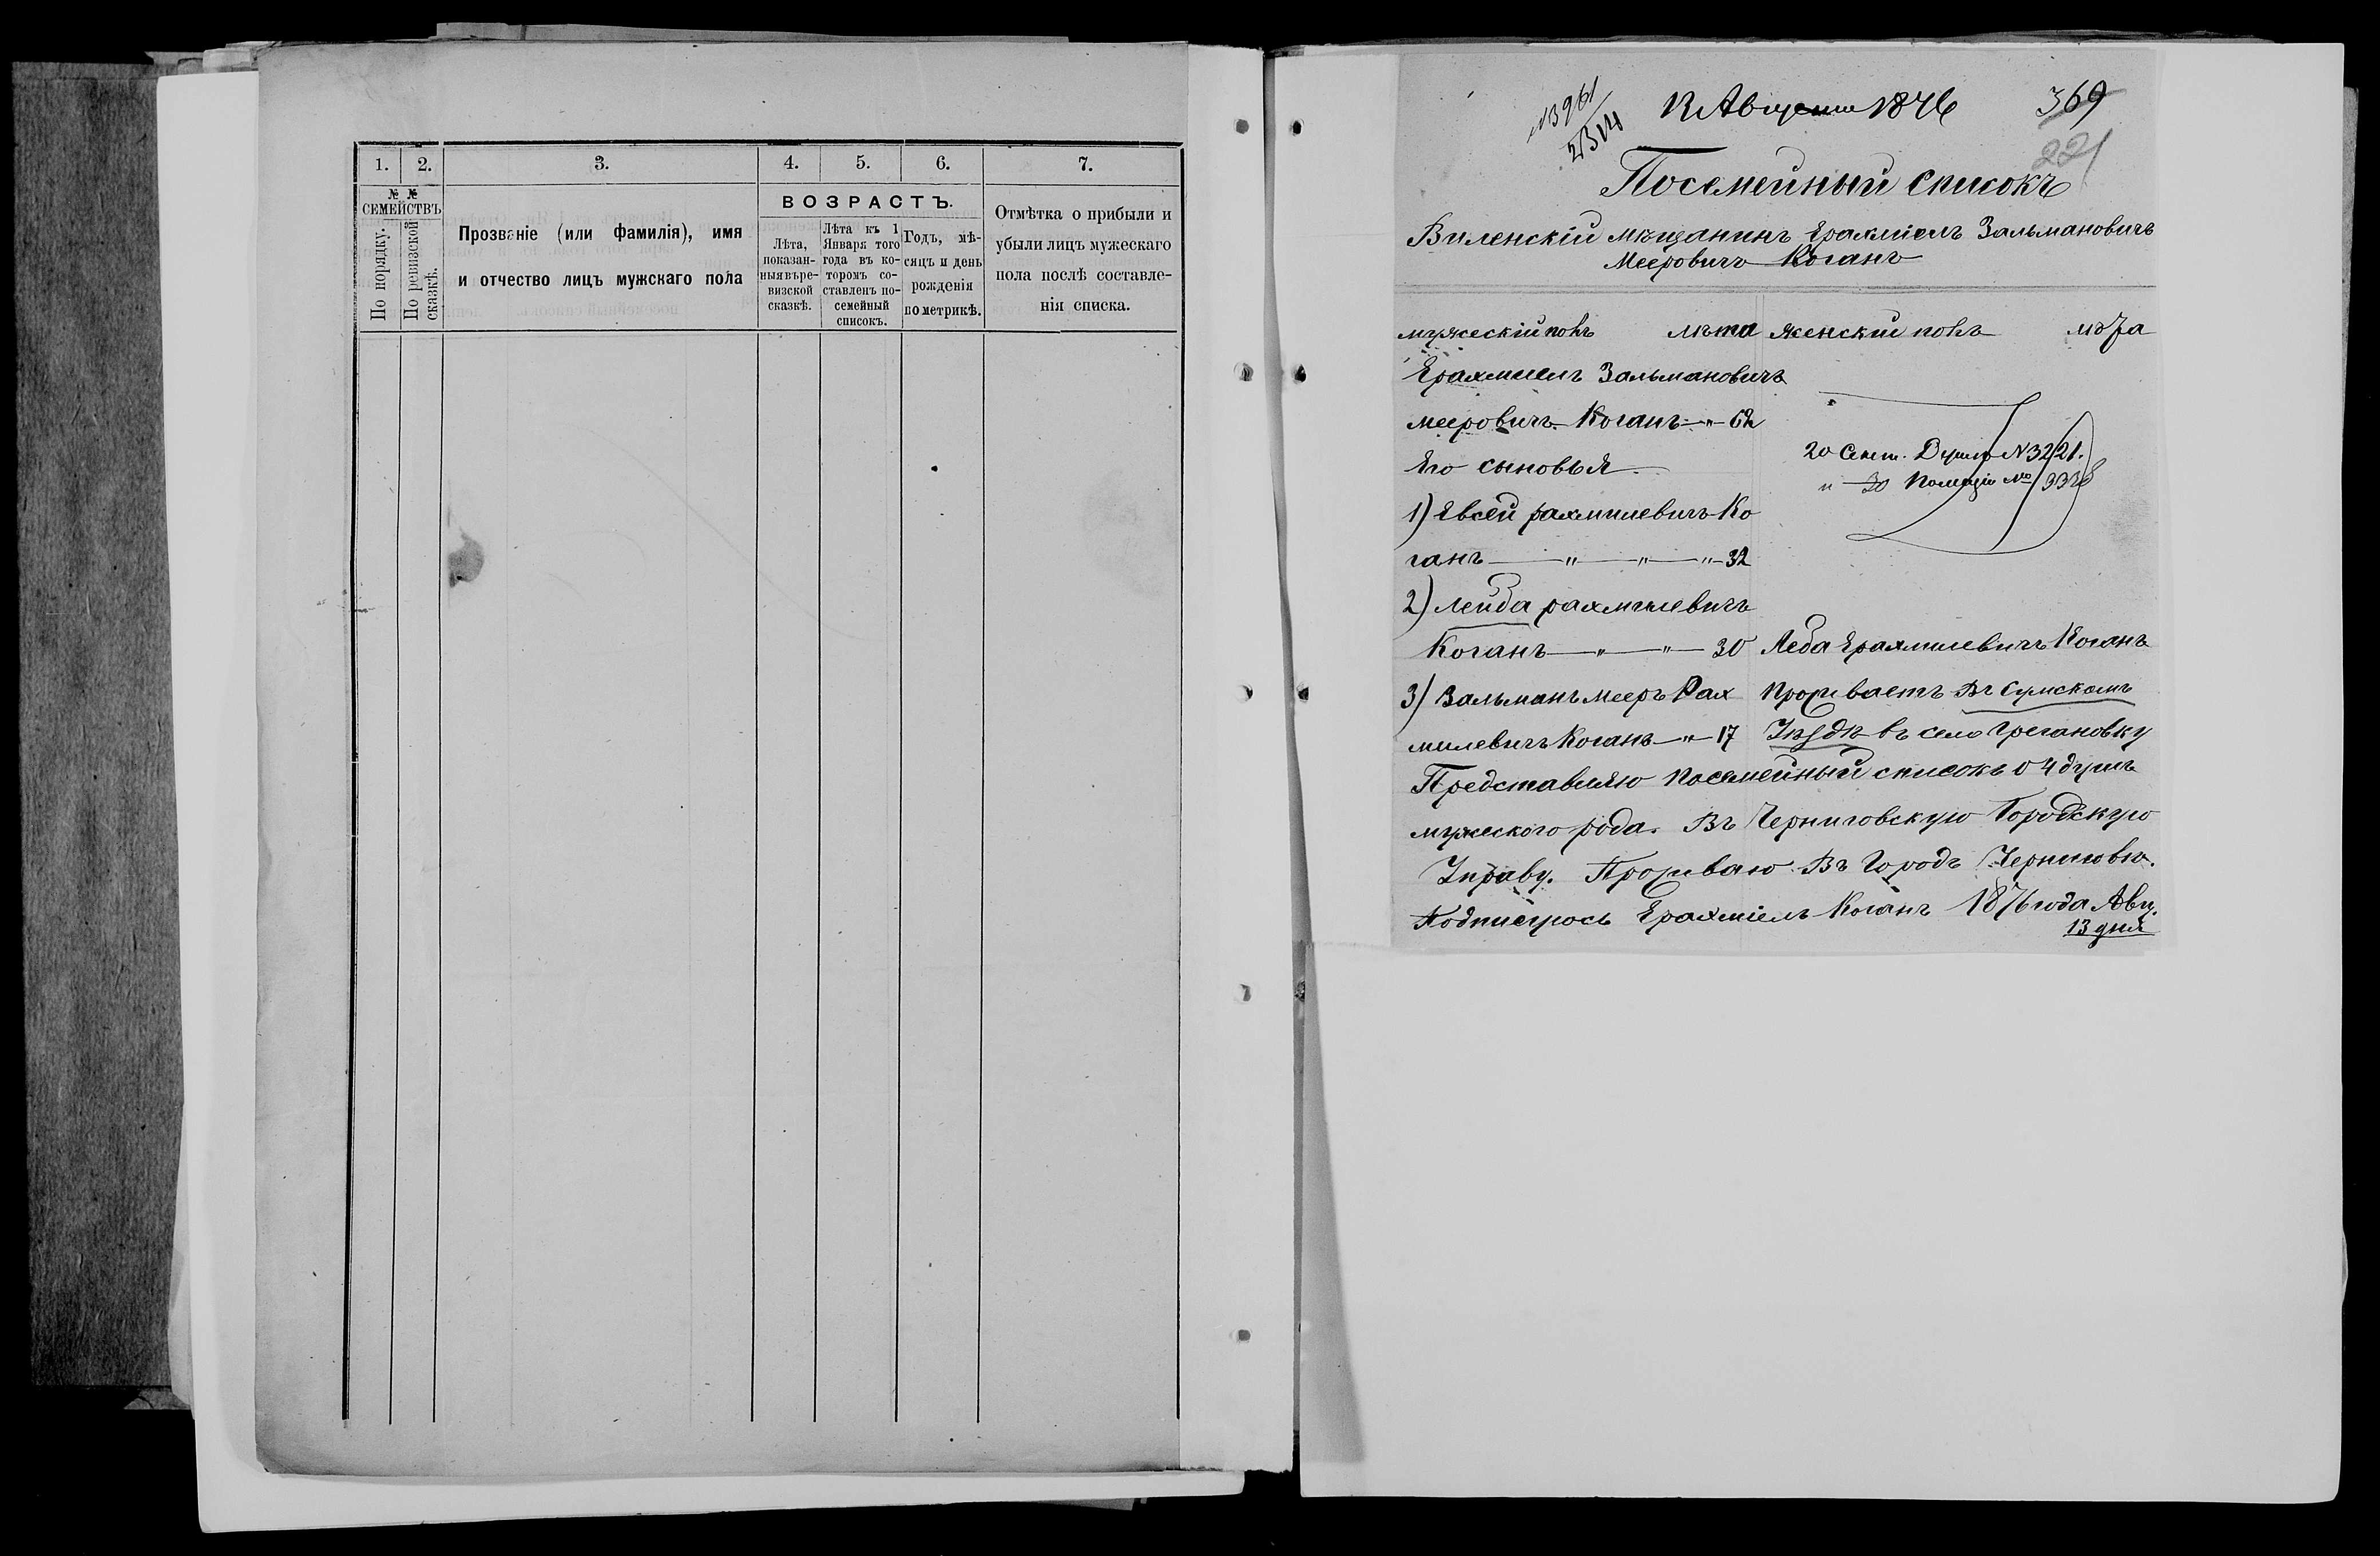 1. 2. 3. 4. 5. 6. 7.
№ №
СЕМЕЙСТВЪ
По порядку.
По ревизской сказкѣ.
Прозваніе (или фамилія), имя
и отчество лицъ мужскаго пола
ВОЗРАСТЪ.
Лѣта,
показан-
ныя въ ре-
визской
сказкѣ.
Лѣта къ 1
Января того
года въ ко-
торомъ со-
ставленъ по-
семейный
списокъ.
Годъ, мѣ-
сяцъ и день
рожденія
по метрикѣ.
Отмѣтка о прибыли и
убыли лицъ мужескаго
пола послѣ составле-
нія списка.
Августа 1876
369
221
Посемейный списокъ
Виленскій мѣщанинъ Ерахміелъ Зальмановичъ
Мееровичъ Коганъ
мужескій полъ лѣта женскій полъ
Ерахмиелъ Зальмановичъ
мееровичъ Коганъ—"—62
Его сыновья
20 Сент. N 3221.
" 30 Полиціи №
1) Евсей рахмилевичъ Ко
ганъ—"—"—"—32
2) Лейба рахмилевичъ
Коганъ—"—"—30 Леба Ерахмилевичъ Коганъ
3) Зальманъ Мееръ Рах проживаетъ Въ Сумскомъ
милевичъ Коганъ—"—17 Уѣздѣ въ село
Представляю посемейный списокъ о 4 душъ
мужеского рода. Въ Черниговскую Городскую
Управу. Проживаю Въ Городѣ Черниговѣ.
Подписуюсь Ерахміелъ Коганъ 1876 года Авг.
13 дня